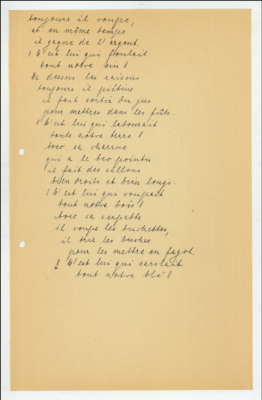 toujours il coupe,
et en même temps
il gagne de l'argent.
! C'est lui qui foulait
tout notre vin !
De dessus les raisins
toujours il piétine
il fait sortir du jus
pour mettre dans les fûts.
! C'est lui qui labourait
toute notre terre !
Avec sa charrue
qui a le bec pointu
il fait des sillons
bien droits et bien longs.
! C'est lui qui coupait
tout notre bois !
Avec sa serpette
il coupe les buchettes,
il trie les branches
pour les mettre en fagot.
! C'est lui qui sarclait
tout notre blé !